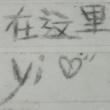 在这里
yi ♡